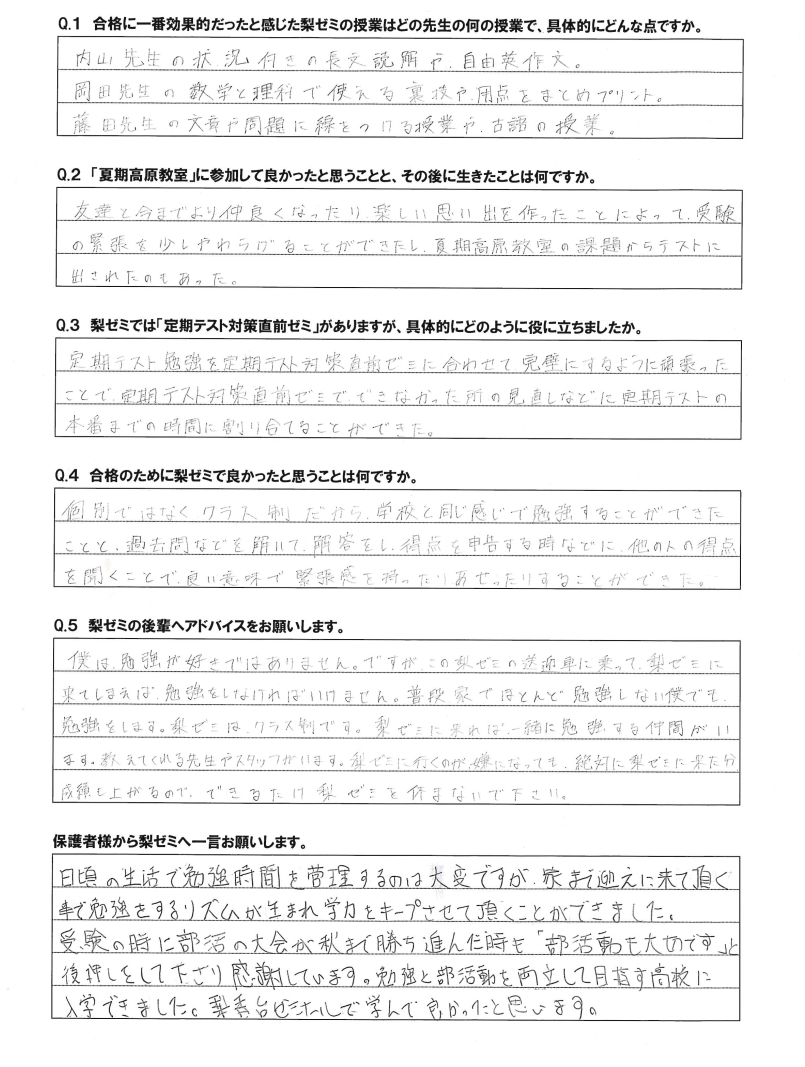 Q.1 合格に一番効果的だったと感じた梨ゼミの授業はどの先生の何の授業で、具体的にどんな点ですか。
内山先生の状況付きの長文読解や、自由英作文。
岡田先生の数学と理科で使える裏技や、用点をまとめプリント。
藤田先生の文章や問題に線をつける授業や、古語の授業。
Q.2 「夏期高原教室」に参加して良かったと思うことと、その後に生きたことは何ですか。
友達と今までより仲良くなったり、楽しい思い出を作ったことによって、受験
の緊張を少しやわらげることができたし、夏期高原教室の課題からテストに
出されたのもあった。
Q.3 梨ゼミでは「定期テスト対策直前ゼミ」がありますが、具体的にどのように役に立ちましたか。
定期テスト勉強を定期テスト対策直前ゼミに合わせて完璧にするように頑張った
ことで、定期テスト対策直前ゼミでできなかった所の見直しなどに定期テストの
本番までの時間に割り合てることができた。
Q.4 合格のために梨ゼミで良かったと思うことは何ですか。
個別ではなくクラス制だから、学校と同じ感じで勉強することができた
ことと、過去問などを解いて、解答をし、得点を申告する時などに、他の人の得点
を聞くことで、良い意味で緊張感を持ったりあせったりすることができた。
Q.5 梨ゼミの後輩へアドバイスをお願いします。
僕は、勉強が好きではありません。ですが、この梨ゼミの送迎車に乗って、梨ゼミに
来てしまえば、勉強をしなければいけません。普段家でほとんど勉強しない僕でも、
勉強をします。梨ゼミは、クラス制です。梨ゼミに来れば、一緒に勉強する仲間がい
ます。教えてくれる先生やスタッフがいます。梨ゼミに行くのが、嫌になっても、絶対に梨ゼミに来た分
成績も上がるので、できるだけ梨ゼミを休まないで下さい。
保護者様から梨ゼミへ一言お願いします。
日頃の生活で勉強時間を管理するのは大変ですが、家まで迎えに来て頂く
事で勉強をするリズムが生まれ学力をキープさせて頂くことができました。
受験の時に部活の大会が秋まで勝ち進んだ時も「部活動も大切です」と
後押しをして下さり感謝しています。勉強と部活動を両立して目指す高校に
入学できました。梨香台ゼミナールで学んで良かったと思います。